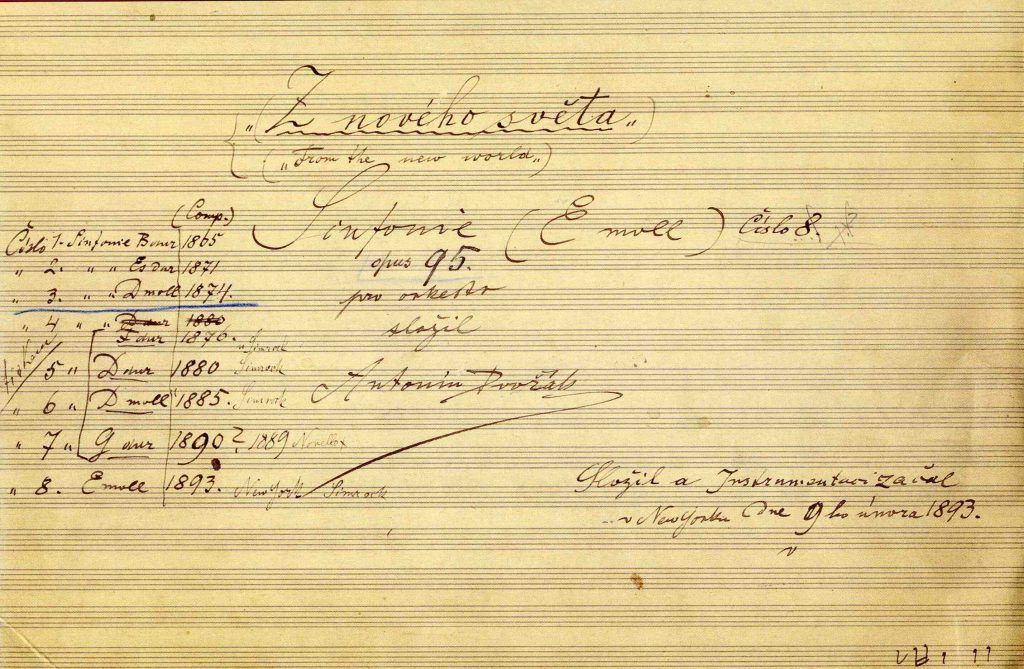 „Z nového světa„
(„From the new world„)
Sinfonie (E moll) Číslo 8.
opus 95.
pro orkestr
složil
Antonín Dvořák
(Comp.)
Číslo 1. Sinfonie B dur 1865
„ 2. „ „ Es dur 1871
„ 3. „ „ D moll 1874.
„ 4 „ „ D dur 1880
F dur 1876. Simrock
5 „ D dur 1880 Simrock
„ 6 „ D moll 1885. Simrock
„ 7 „ G dur 1890? 1889 Novello
„ 8. E moll 1893. New York Simrock
Složil a Instrumentaci začal
v New Yorku dne 9ho února 1893.